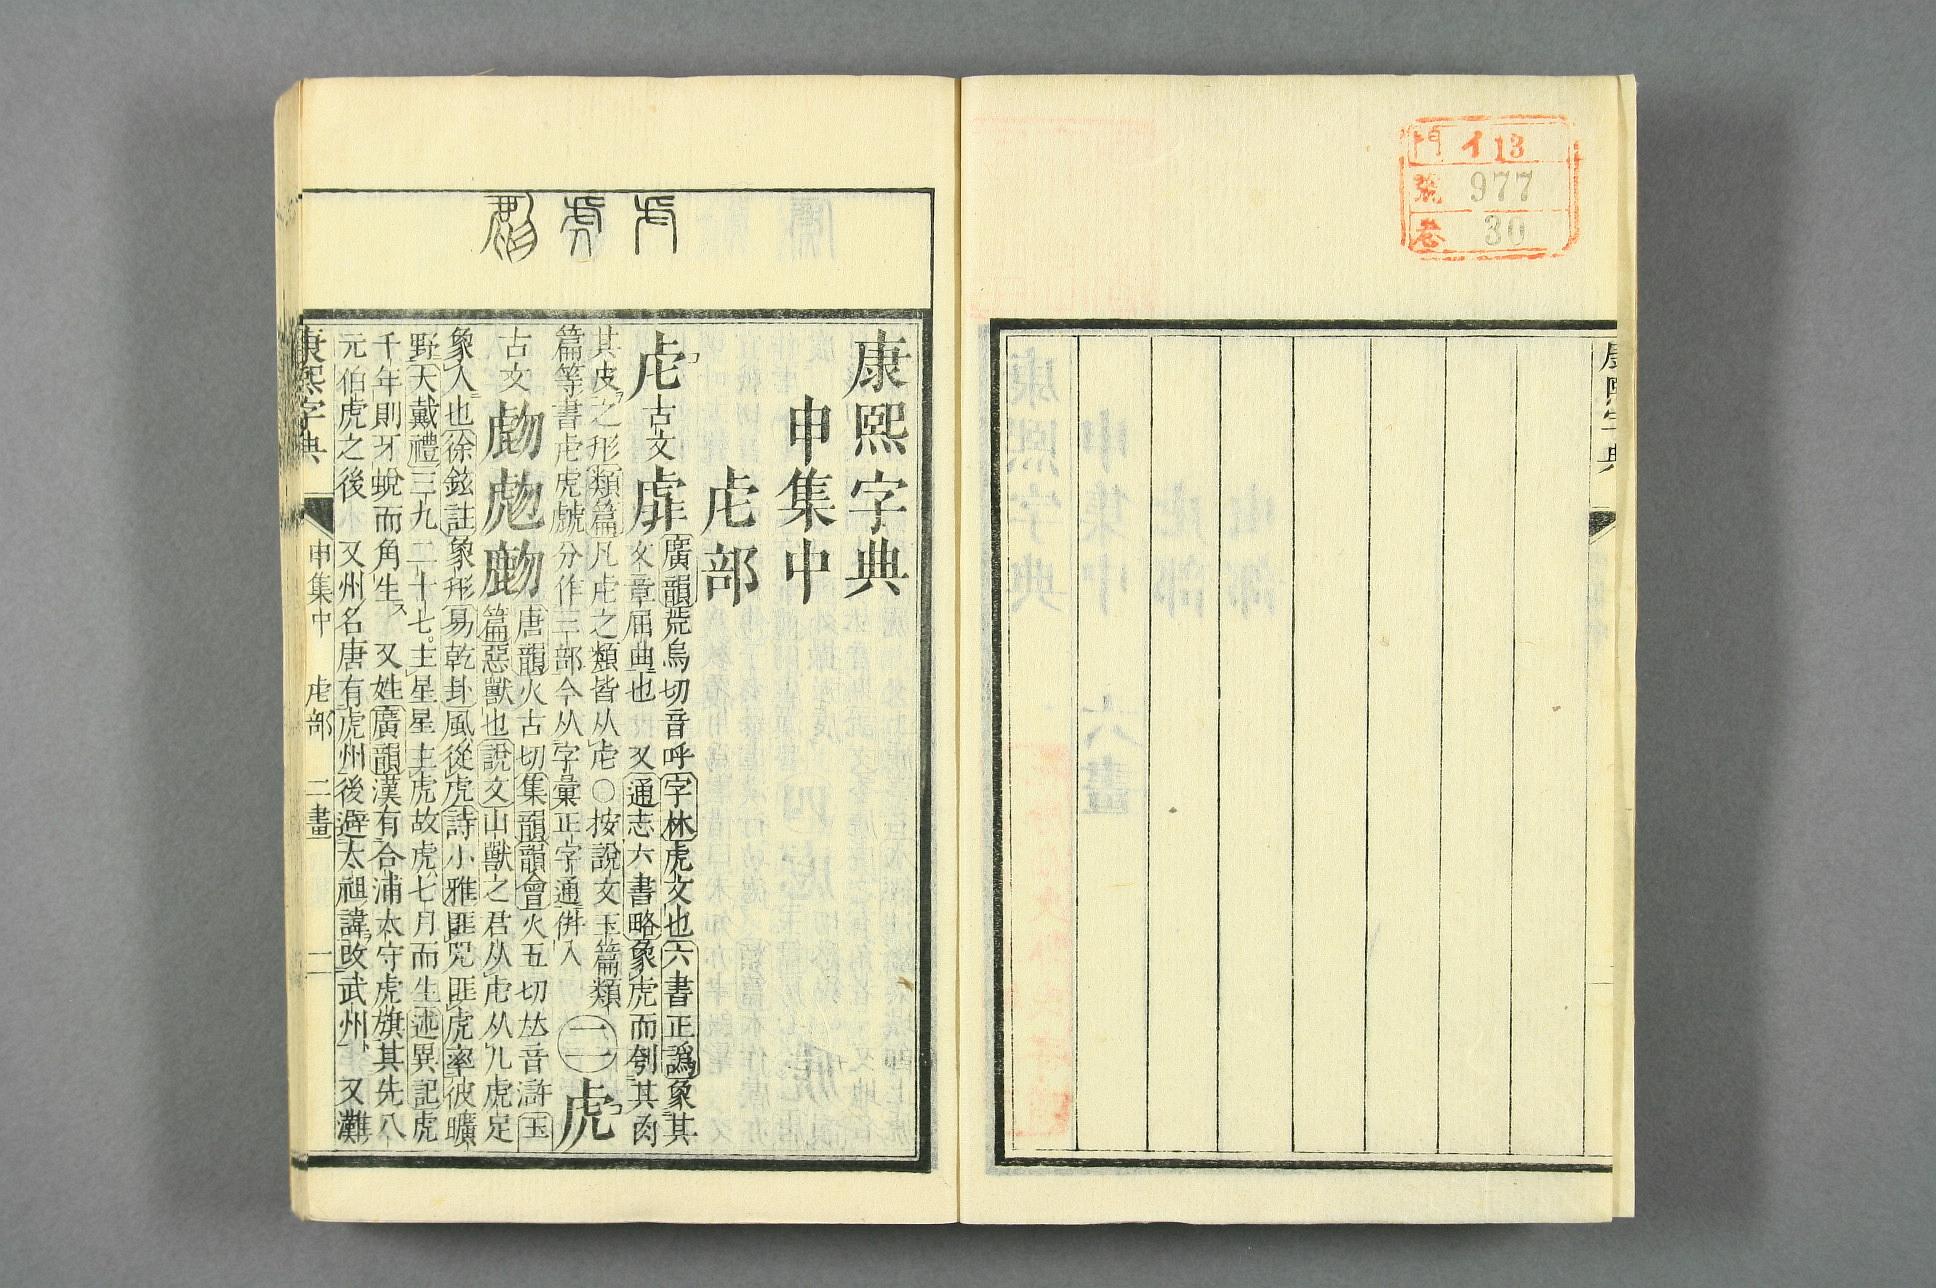 門 イ 13
号 977
卷 30
康熙字典
康熙字典
申集中
虍部
虍 古文
廣韻荒烏切音呼字林虎文也六書正譌象其
文章屈曲也 又通志六書略象虎而刳其肉
其皮之形類篇凡虍之類皆从虍○按說文玉篇類
篇等書虍虎虤分作三部今从字彙正字通倂入
二 虎
古文
唐韻火古切集韻韻會火五切𠀤音滸玉
篇惡獸也說文山獸之君从虍从儿虎足
象人也徐鉉註象形易乾卦風從虎詩小雅匪兕匪虎率彼曠
野大戴禮三九二十七主星星主虎故虎七月而生述異記虎
千年則牙蛻而角生 又姓廣韻漢有合浦太守虎旗其先八
元伯虎之後 又州名唐有虎州後避太祖諱改武州 又灘
康熙字典 申集中 虍部 二畫 二